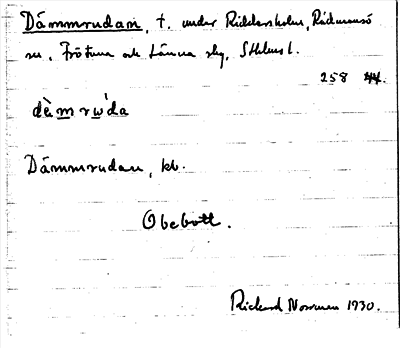 Dämmrudan, t. under Riddersholm, Rådmansö
sn, Frötuna och Länna skg, Sthlms l.
258 44.
dèmrẁda
Dämmrudan, kb.
Obebott.
Rickard Norrman 1930.